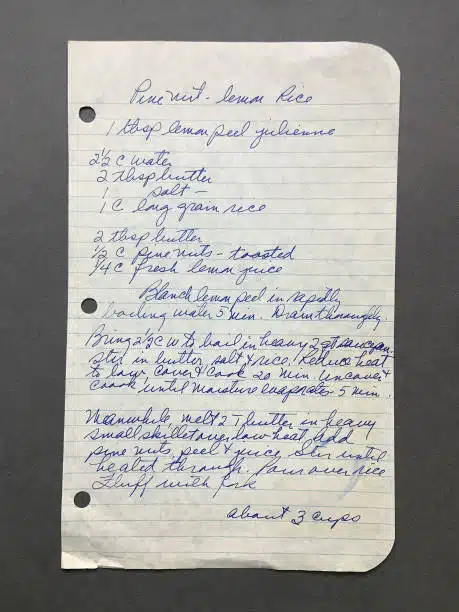 Pine nut - lemon Rice
1 tbsp lemon peel julienne
2½ C water
2 tbsp butter
1 salt -
1 C long grain rice
2 tbsp butter
½ C pine nuts - toasted
¼ C fresh lemon juice
Blanch lemon peel in rapidly
boiling water 5 min. Drain thoroughly
Bring 2½ C W to boil in heavy 2 qt saucepan
Stir in butter, salt & rice. Reduce heat
to low. Cover & Cook 20 min. Uncover &
Coook until moisture evaporates 5 min.
Meanwhile melt 2 T butter in heavy
small skillet over low heat. Add
pine nuts, peel & juice. Stir until
heated through. Pour over rice
Fluff with fork
about 3 cups